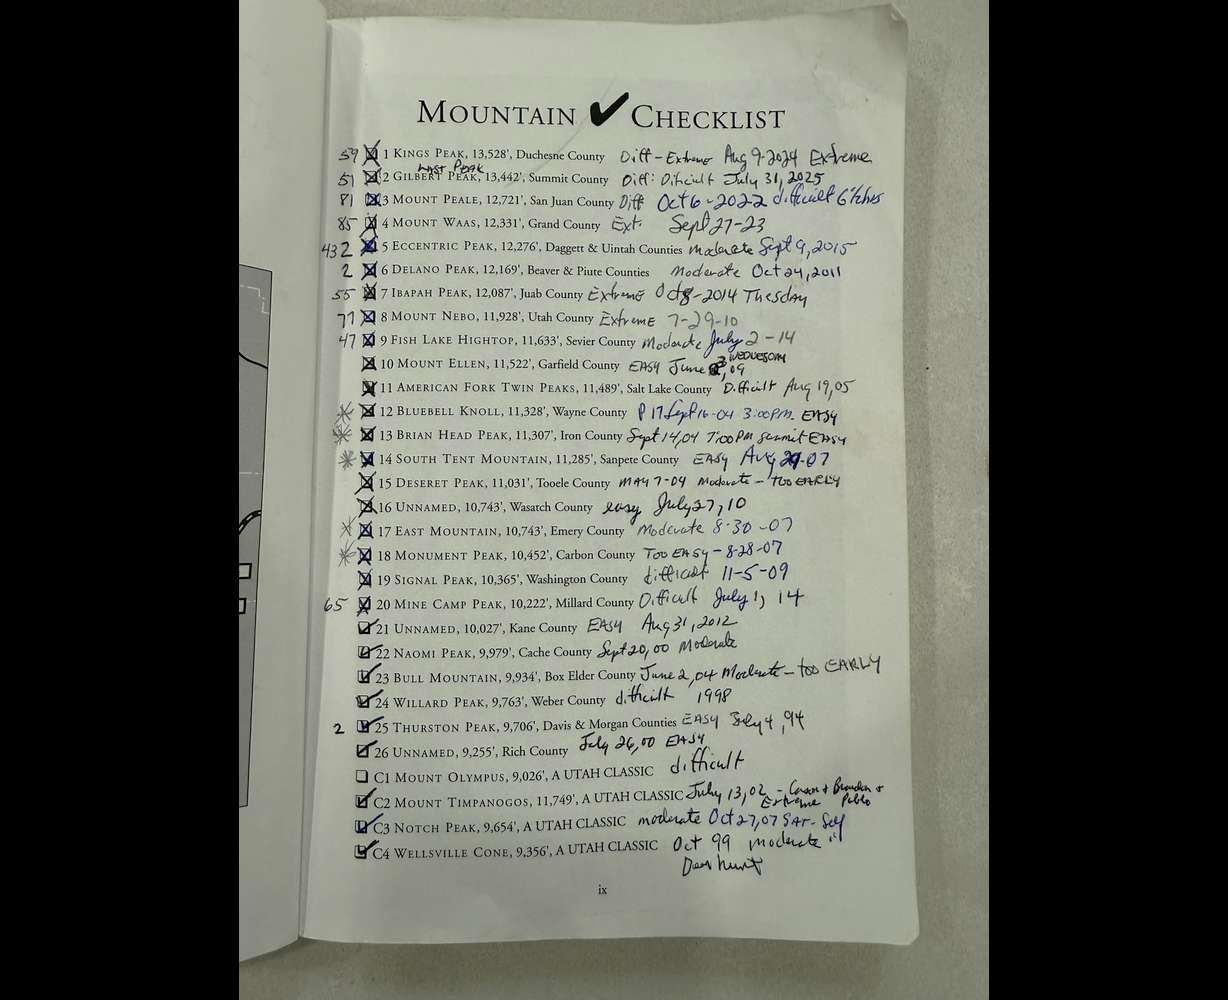 MOUNTAIN ✔ CHECKLIST
59 1 KINGS PEAK, 13,528', Duchesne County Diff - Extreme Aug 9-2024 Extreme
Last Peak
51 2 GILBERT PEAK, 13,442', Summit County Diff: Dificult July 31, 2025
81 3 MOUNT PEALE, 12,721', San Juan County Diff Oct 6-2022 difficult
85 4 MOUNT WAAS, 12,331', Grand County Ext. Sept 27-23
432 5 ECCENTRIC PEAK, 12,276', Daggett & Uintah Counties Moderate Sept 9, 2015
2 6 DELANO PEAK, 12,169', Beaver & Piute Counties Moderate Oct 24, 2011
55 7 IBAPAH PEAK, 12,087', Juab County Extreme Oct 8-2014 Thesday
77 8 MOUNT NEBO, 11,928', Utah County Extreme 7-29-10
47 9 FISH LAKE HIGHTOP, 11,633', Sevier County Moderate July 2-14
10 MOUNT ELLEN, 11,522', Garfield County EASY June 3, 09 WEDNESDAY
11 AMERICAN FORK TWIN PEAKS, 11,489', Salt Lake County Difficult Aug 19, 05
12 BLUEBELL KNOLL, 11,328', Wayne County P 17 Sept 16-04 3:00 PM. EASY
13 BRIAN HEAD PEAK, 11,307', Iron County Sept 14, 04 7:00 PM summit EASY
14 SOUTH TENT MOUNTAIN, 11,285', Sanpete County EASY Aug 29-07
15 DESERET PEAK, 11,031', Tooele County MAY 7-04 Moderate - too EARLY
16 UNNAMED, 10,743', Wasatch County easy July 27, 10
17 EAST MOUNTAIN, 10,743', Emery County Moderate 8-30-07
18 MONUMENT PEAK, 10,452', Carbon County TOO EASY - 8-28-07
19 SIGNAL PEAK, 10,365', Washington County difficult 11-5-09
65 20 MINE CAMP PEAK, 10,222', Millard County Difficult July 1, 14
21 UNNAMED, 10,027', Kane County EASY Aug 31, 2012
22 NAOMI PEAK, 9,979', Cache County Sept 20, 00 Moderate
23 BULL MOUNTAIN, 9,934', Box Elder County June 2, 04 Moderate - too EARLY
24 WILLARD PEAK, 9,763', Weber County difficult 1998
2 25 THURSTON PEAK, 9,706', Davis & Morgan Counties EASY July 4, 94
26 UNNAMED, 9,255', Rich County July 26, 00 EASY
C1 MOUNT OLYMPUS, 9,026', A UTAH CLASSIC difficult
C2 MOUNT TIMPANOGOS, 11,749', A UTAH CLASSIC July 13, 02 - Carson + Brandon +
Extreme Pablo
C3 NOTCH PEAK, 9,654', A UTAH CLASSIC moderate Oct 27, 07 SAT- Self
C4 WELLSVILLE CONE, 9,356', A UTAH CLASSIC Oct 99 moderate
Deer hunt
ix